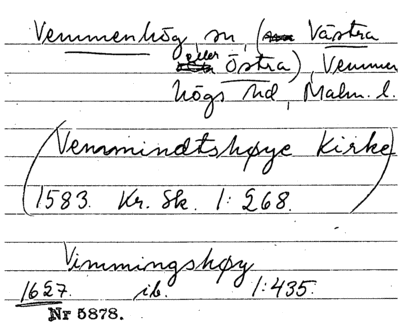 Vemmenhög, sn, (Västra
eller Östra), Vemmen
högs hd, Malm. l.
(Vemmindtshøye Kirke)
1583. Kr. Sk. 1: 268.
Vimmingshøy
1627. ib. 1:435.
Nr 5878.